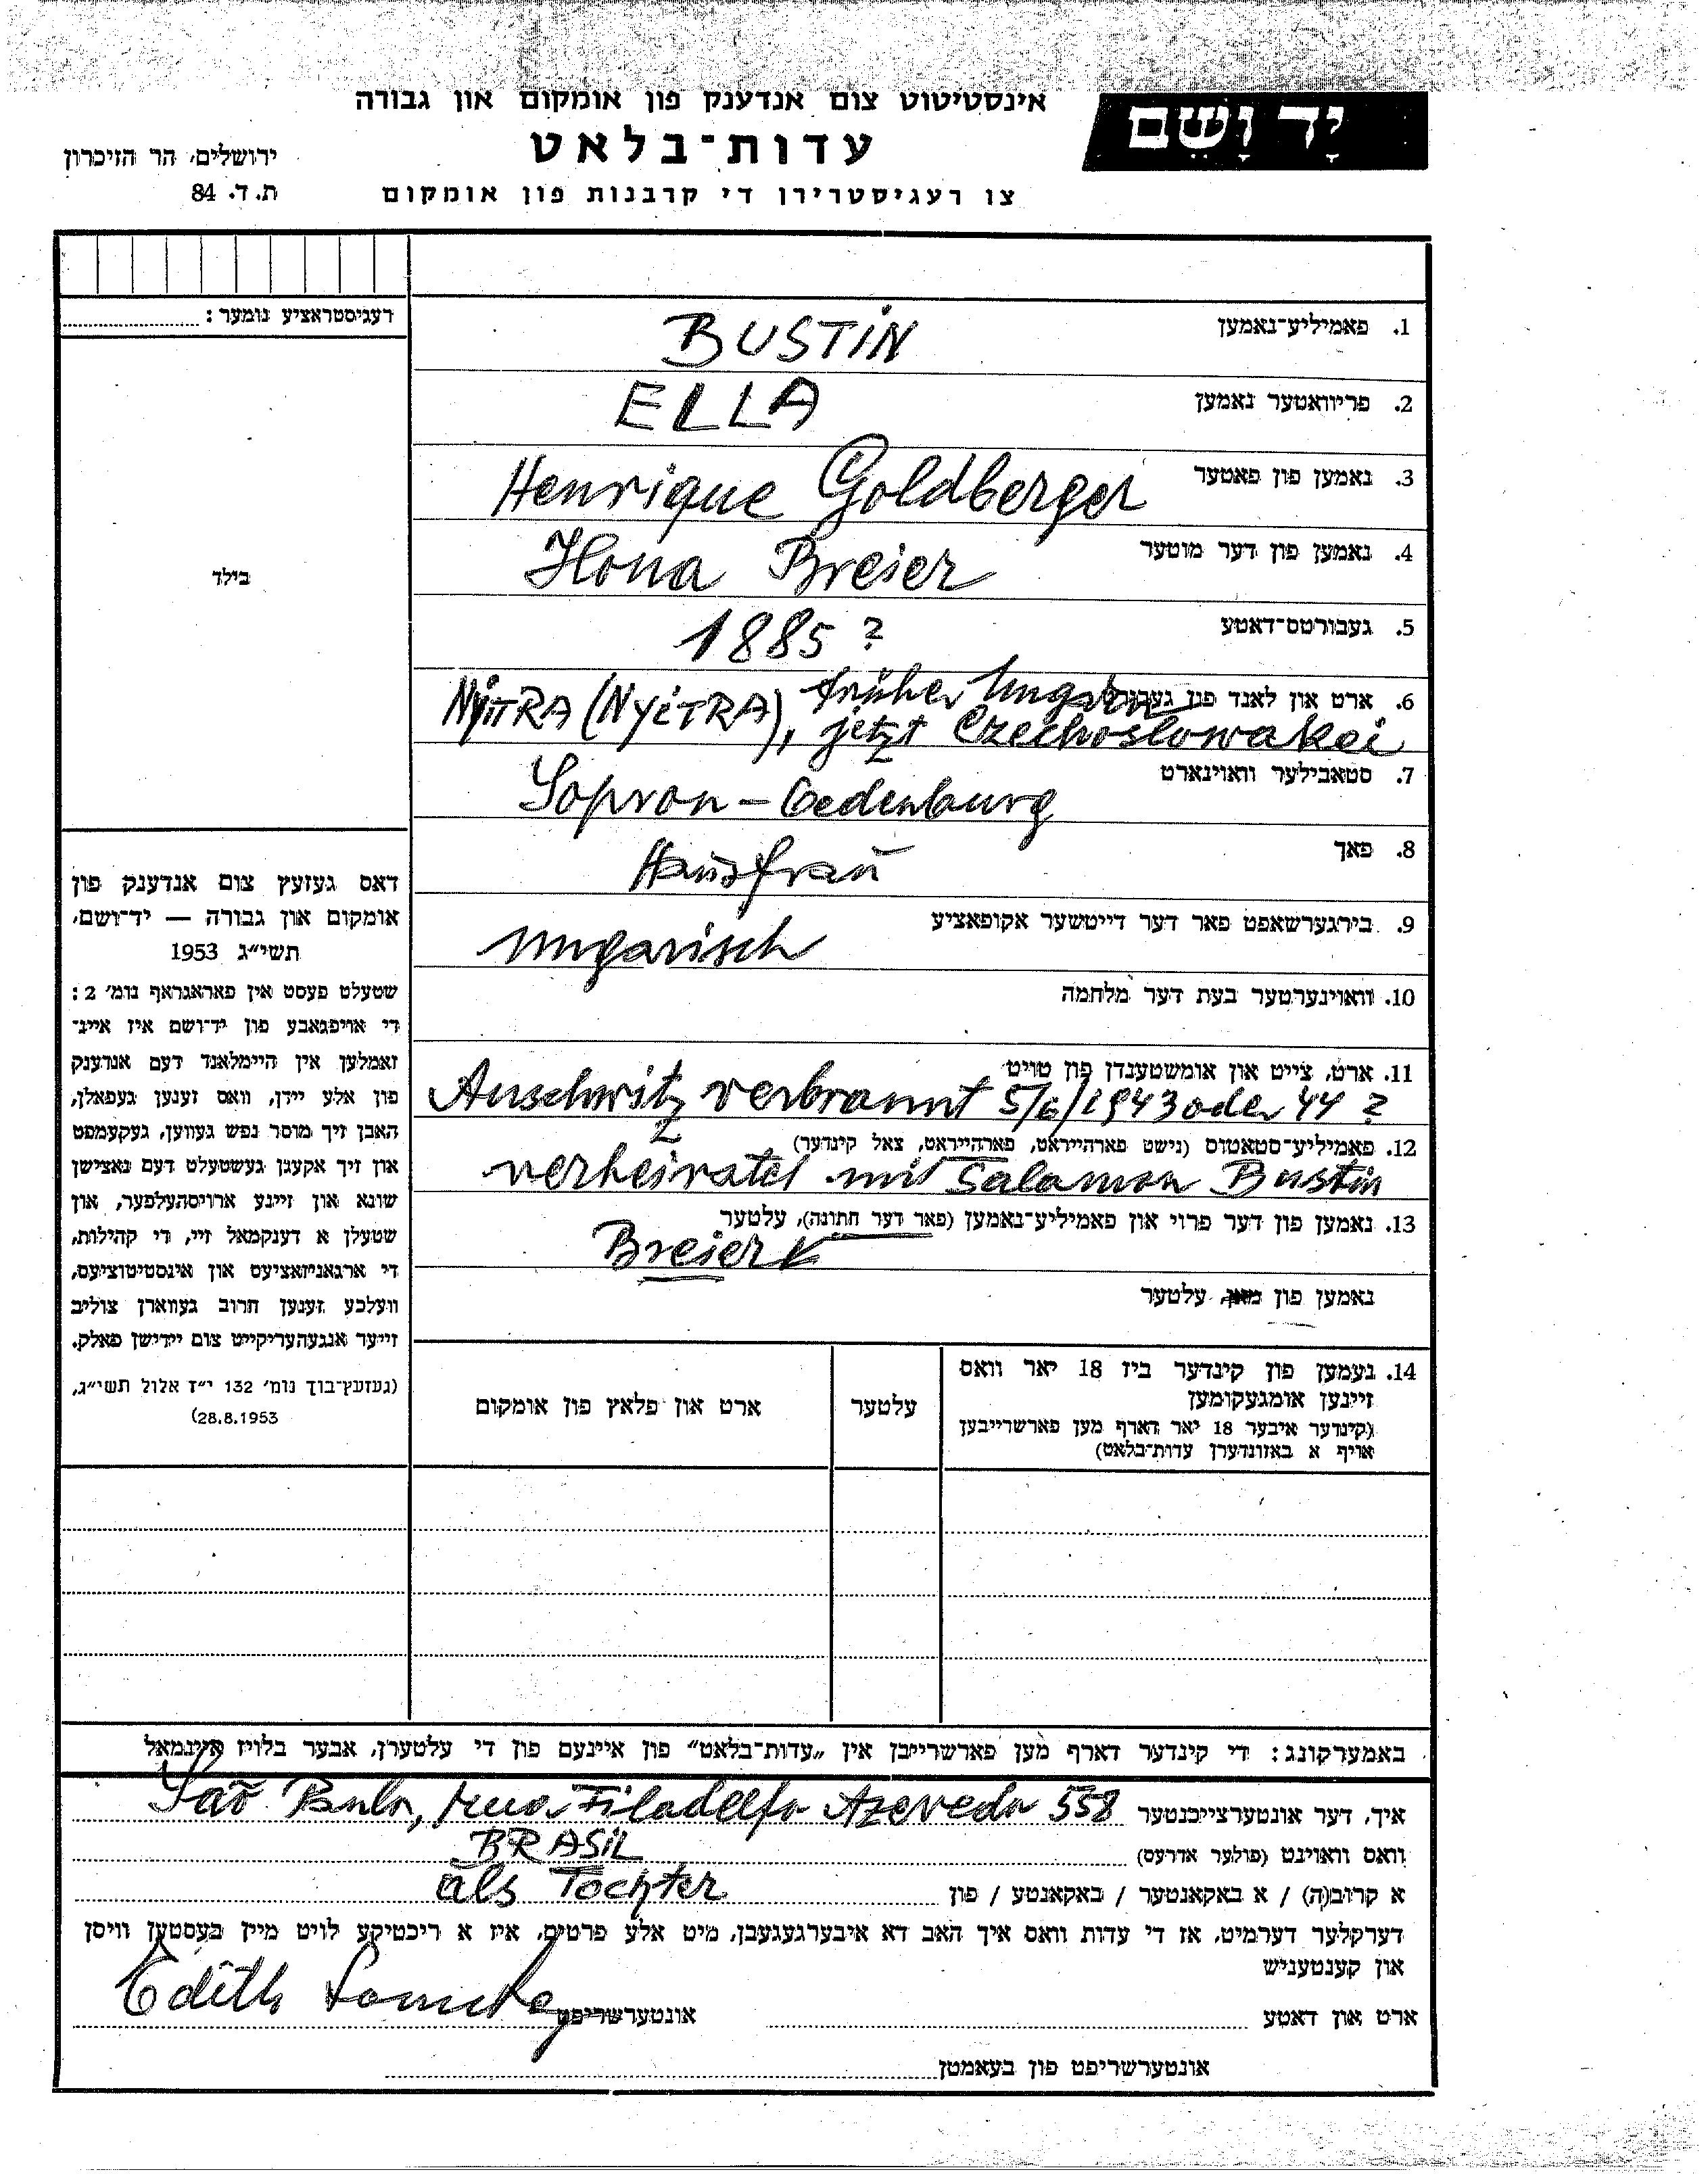 יָד וָשֵׁם
אינסטיטוט צום אנדענק פון אומקום און גבורה
עדות־בלאט
צו רעגיסטרירן די קרבנות פון אומקום
ירושלים, הר הזיכרון
ת. ד. 84
רעגיסטראציע נומער :
בילד
1. פאמיליע־נאמען
BUSTIN
2. פריוואטער נאמען
ELLA
3. נאמען פון פאטער
Henrique Goldberger
4. נאמען פון דער מוטער
Ilona Breier
5. געבורטס־דאטע
1885 ?
6. ארט און לאנד פון
NiTRA (NYiTRA), früher Ungarn
jetzt Czechoslowakei
7. סטאבילער וואוינארט
Sopron - Oedenburg
8. פאך
Hausfrau
9. בירגערשאפט פאר דער דייטשער אקופאציע
ungarisch
10. וואוינערטער בעת דער מלחמה
11. ארט, צייט און אומשטענדן פון טויט
Auschwitz verbrannt 5/6/1943 oder 44 ?
12. פאמיליע־סטאטוס (נישט פארהייראט, פארהייראט, צאל קינדער)
verheiratet mit Salamon Bustin
13. נאמען פון דער פרוי און פאמיליע־נאמען (פאר דער חתונה), עלטער
Breier
נאמען פון מאן, עלטער
14. נעמען פון קינדער ביז 18 יאר וואס
זיינען אומגעקומען
(קינדער איבער 18 יאר דארף מען פארשרייבען
אויף א באזונדערן עדות־בלאט)
עלטער
ארט און פלאץ פון אומקום
דאס געזעץ צום אנדענק פון
אומקום און גבורה — יד־ושם,
תשי״ג 1953
שטעלט פעסט אין פאראגראף נומ׳ 2 :
די אויפגאבע פון יד־ושם איז איינ־
זאמלען אין היימלאנד דעם אנדענק
פון אלע יידן, וואס זענען געפאלן,
האבן זיך מוסר נפש געווען, געקעמפט
און זיך אקעגן געשטעלט דעם נאצישן
שונא און זיינע ארויסהעלפער, און
שטעלן א דענקמאל זיי, די קהילות,
די ארגאניזאציעס און אינסטיטוציעס,
וועלכע זענען חרוב געווארן צוליב
זייער אנגעהעריקייט צום יידישן פאלק.
(געזעץ־בוך נומ׳ 132 י״ז אלול תשי״ג,
28.8.1953)
באמערקונג : די קינדער דארף מען פארשרייבן אין „עדות־בלאט״ פון איינעם פון די עלטערן, אבער בלויז איינמאל
איך, דער אונטערצייכנטער
São Paulo, rua Filadelfo Azevedo 558
וואס וואוינט (פולער אדרעס)
BRASIL
א קרוב(ה) / א באקאנטער / באקאנטע / פון
als Tochter
דערקלער דערמיט, אז די עדות וואס איך האב דא איבערגעגעבן, מיט אלע פרטים, איז א ריכטיקע לויט מיין בעסטען וויסן
און קענטעניש
ארט און דאטע
אונטערשריפט
Edith
אונטערשריפט פון בעאמטן